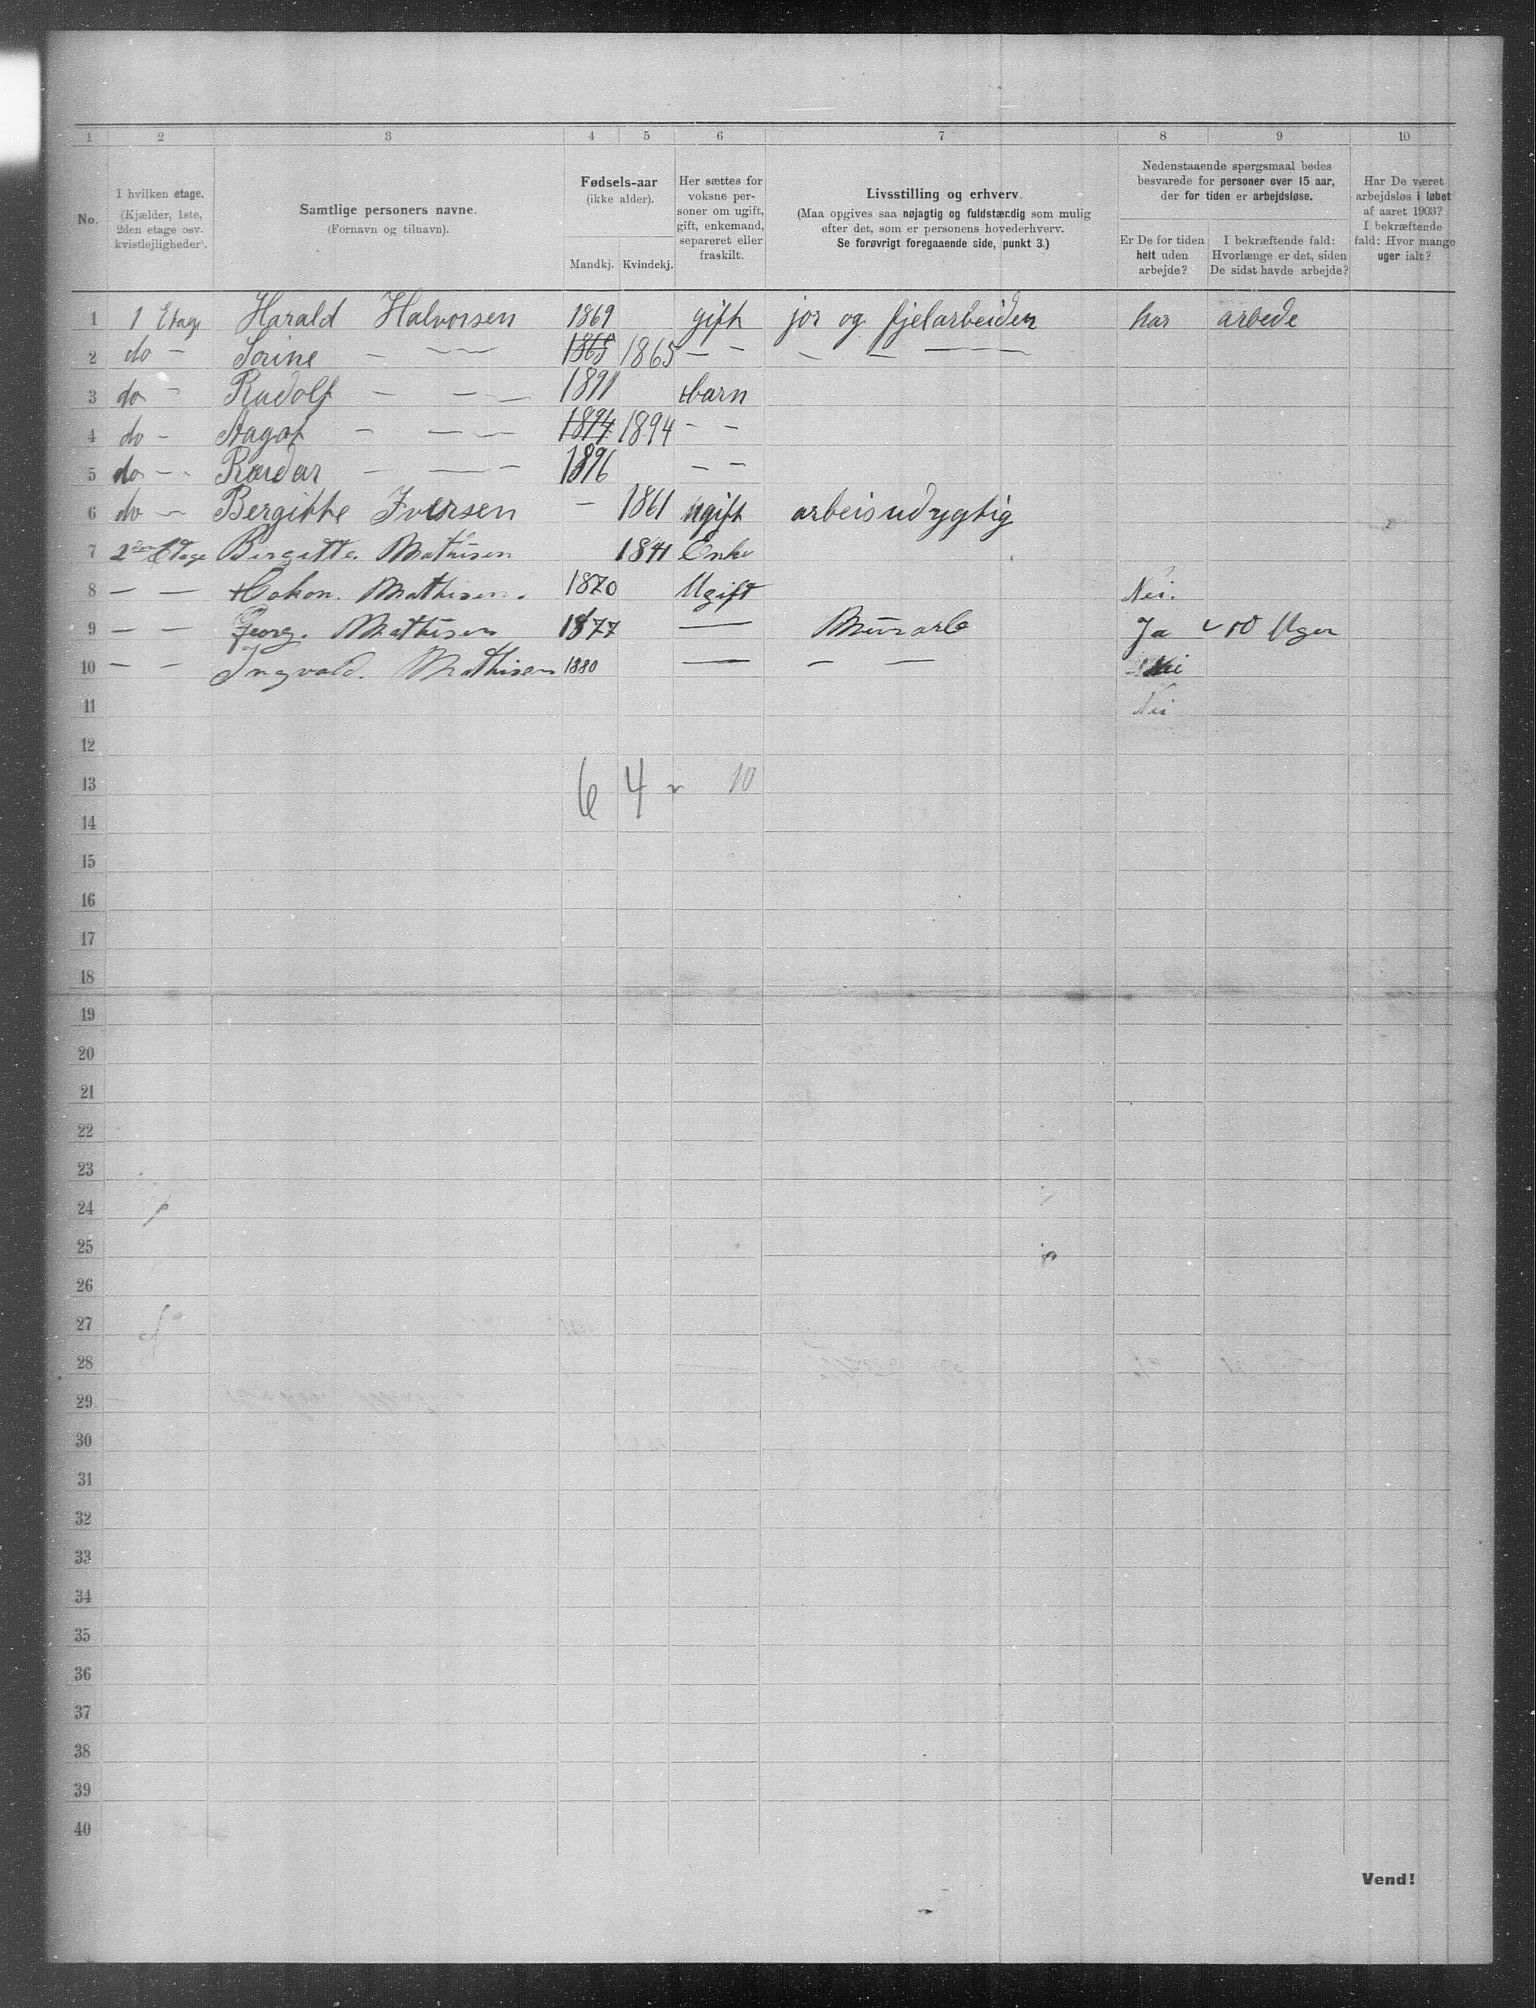 1 2 3 4 5 6 7 8 9 10
No.
I hvilken etage.
(Kjælder, 1ste,
2den etage osv.
kvistlejligheder).
Samtlige personers navne.
(Fornavn og tilnavn).
Fødsels-aar
(ikke alder).
Mandkj. Kvindekj.
Her sættes for
voksne per-
soner om ugift,
gift, enkemand,
separeret eller
fraskilt.
Livsstilling og erhverv.
(Maa opgives saa nøjagtig og fuldstærdig som mulig
efter det, som er personens hovederhverv.
Se forøvrigt foregaaende side, punkt 3.)
Nedenstaaende spørgsmaal bedes
besvarede for personer over 15 aar,
der for tiden er arbejdsløse.
Er De for tiden
helt uden
arbejde?
I bekræftende fald:
Hvorlænge er det, siden
De sidst havde arbejde?
Har De været
arbejdsløs i løbet
af aaret 1903?
I bekræftende
fald: Hvor mange
uger ialt?
1 1 Etage Harald Halvorsen 1869 gift jor og fjelarbeider har arbede
2 do - Sorine - — — 1865 - - - - —
3 do - Rudolf - - - 1891 barn
4 do - Aagot - — - 1894 1894 - -
5 do - - Reidar - — - 1896 - -
6 do - Bergitte Iversen - 1861 ugift arbeisudygtig
7 2den Etage Birgitte Mathisen 1841 Enke
8 - - Hakon. Mathisen. 1870 Ugift Nei.
9 - - Georg. Mathisen 1877 — Murarb Ja 10 Uger
10 - - Ingvald. Mathisen 1880 — - - Nei
11 Nei
12
13 6 4 10
14
15
16
17
18
19
20
21
22
23
24
25
26
27
28
29
30
31
32
33
34
35
36
37
38
39
40
Vend!